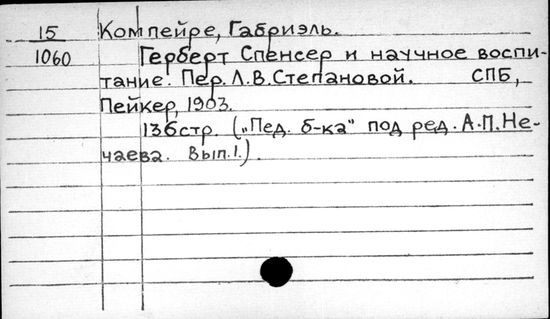 15 Компейре, Габриэль.
1060 Герберт Спенсер и научное воспи-
тание. Пер. Л.В.Степановой. СПБ,
Пейкер, 1903.
136стр. („Пед. б-ка" под ред. А.П.Не-
чаева. Вып.1.).